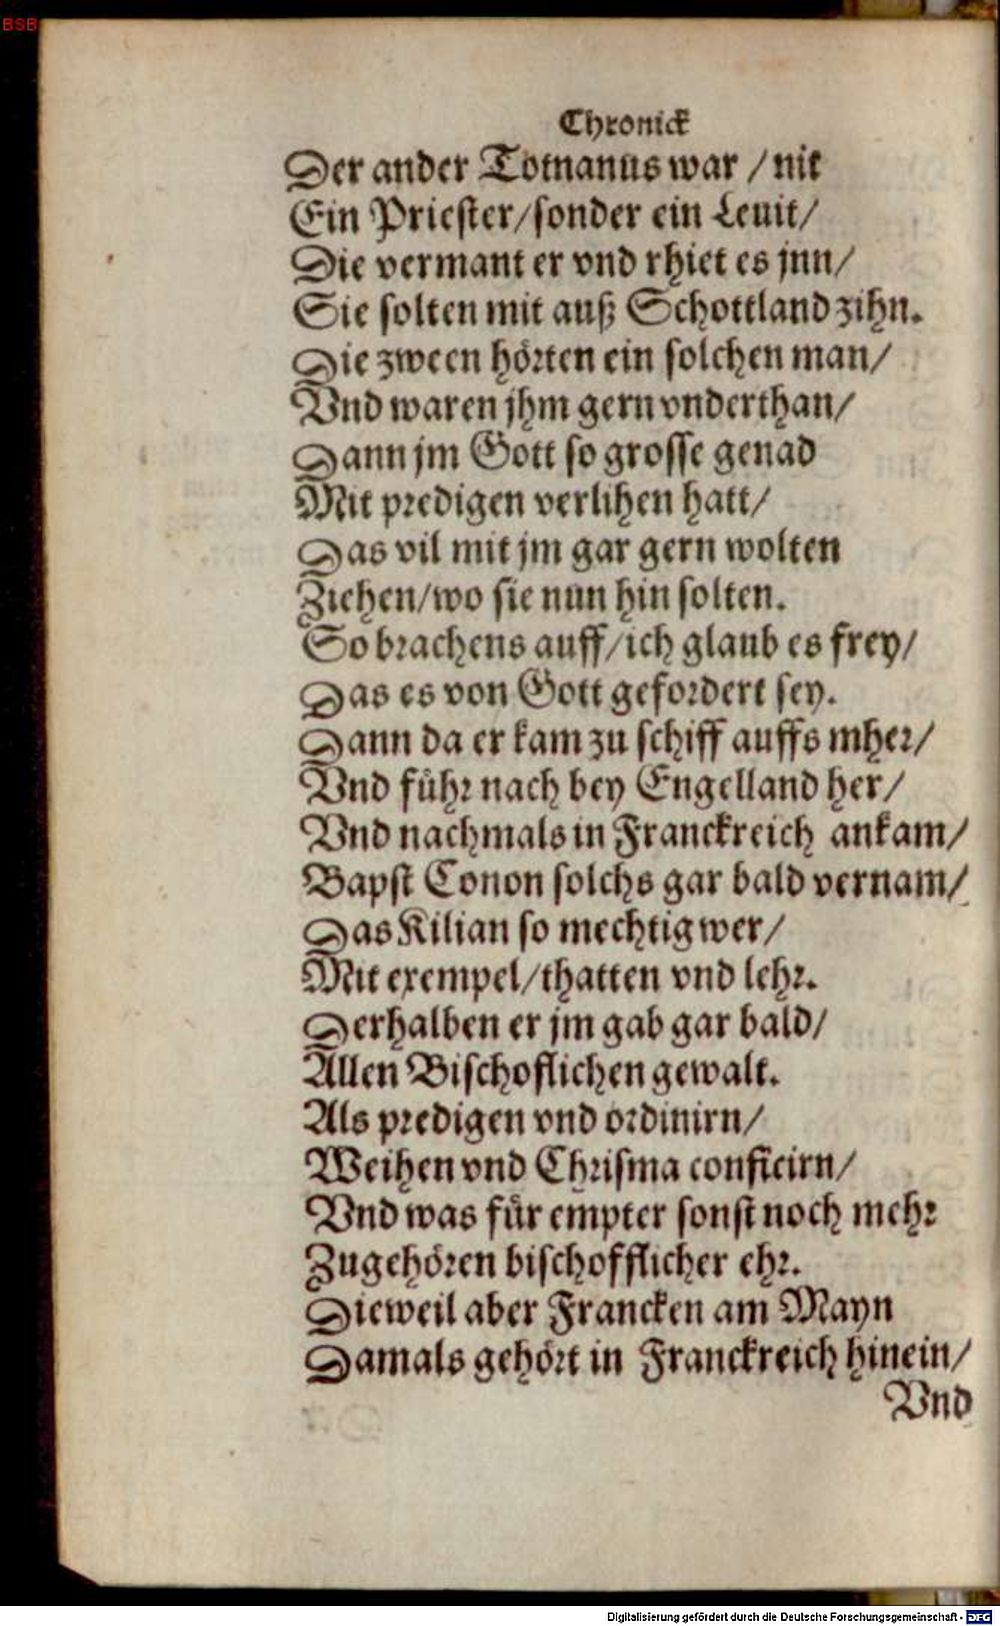 BSB
Chronick
Der ander Totnanus war / nit
Ein Priester/sonder ein Leuit/
Die vermant er vnd rhiet es jnn/
Sie solten mit auß Schottland zihn.
Die zween hörten ein solchen man/
Vnd waren jhm gern vnderthan/
Dann jm Gott so grosse genad
Mit predigen verlihen hatt/
Das vil mit jm gar gern wolten
Ziehen/wo sie nun hin solten.
So brachens auff/ich glaub es frey/
Das es von Gott gefordert sey.
Dann da er kam zu schiff auffs mher/
Vnd führ nach bey Engelland her/
Vnd nachmals in Franckreich ankam/
Bapst Conon solchs gar bald vernam/
Das Kilian so mechtig wer/
Mit exempel/thatten vnd lehr.
Derhalben er jm gab gar bald/
Allen Bischoflichen gewalt.
Als predigen vnd ordinirn/
Weihen vnd Chrisma conficirn/
Vnd was für empter sonst noch mehr
Zugehören bischofflicher ehr.
Dieweil aber Francken am Mayn
Damals gehört in Franckreich hinein/
Vnd
Digitalisierung gefördert durch die Deutsche Forschungsgemeinschaft - DFG